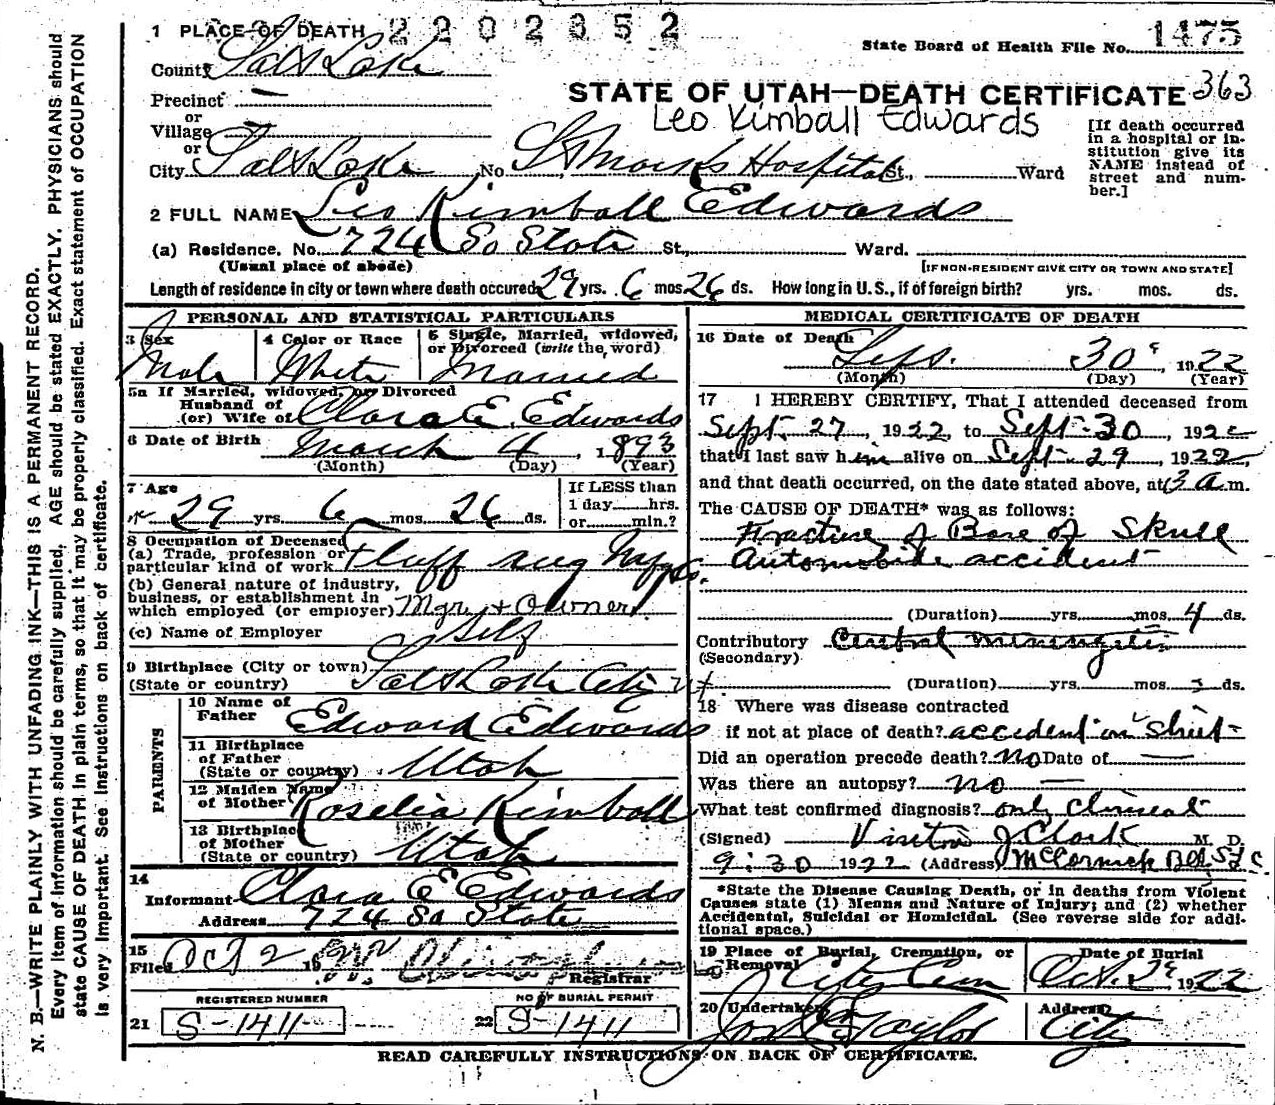 1 PLACE OF DEATH 2202352
State Board of Health File No. 1475
County Salt Lake
Precinct —
STATE OF UTAH—DEATH CERTIFICATE 363
or
Village
Leo Kimball Edwards
[If death occurred in a hospital or institution give its NAME instead of street and number.]
or
City Salt Lake No. St Marks Hospital St., Ward
2 FULL NAME Leo Kimball Edwards
(a) Residence. No. 724 So State St., Ward.
(Usual place of abode) [IF NON-RESIDENT GIVE CITY OR TOWN AND STATE]
Length of residence in city or town where death occured 29 yrs. 6 mos. 26 ds. How long in U.S., if of foreign birth? yrs. mos. ds.
PERSONAL AND STATISTICAL PARTICULARS
3 Sex 4 Color or Race 5 Single, Married, widowed, or Divorced (write the word)
Male White Married
5a If Married, widowed, or Divorced
Husband of
(or) Wife of Clara E. Edwards
6 Date of Birth March 4, 1893
(Month) (Day) (Year)
7 Age If LESS than
29 yrs. 6 mos. 26 ds. 1 day hrs. or min.?
8 Occupation of Deceased
(a) Trade, profession or
particular kind of work Fluff rug Mfg
(b) General nature of industry,
business, or establishment in
which employed (or employer) Mgr + Owner
(c) Name of Employer Self
9 Birthplace (City or town)
(State or country) Salt Lake City Ut
PARENTS
10 Name of
Father Edward Edwards
11 Birthplace
of Father
(State or country) Utah
12 Maiden Name
of Mother Roselia Kimball
13 Birthplace
of Mother
(State or country) Utah
14
Informant Clara E Edwards
Address 724 So State
15
Filed Oct 2 19
Registrar
REGISTERED NUMBER NO OF BURIAL PERMIT
21 S-1411 22 S-1411
MEDICAL CERTIFICATE OF DEATH
16 Date of Death
Sept. 30, 1922
(Month) (Day) (Year)
17 I HEREBY CERTIFY, That I attended deceased from
Sept. 27, 1922, to Sept. 30, 1922
that I last saw him alive on Sept. 29, 1922,
and that death occurred, on the date stated above, at 3 a.m.
The CAUSE OF DEATH* was as follows:
Fracture of Base of Skull
Automobile accident
(Duration) yrs. mos. 4 ds.
Contributory
(Secondary) meningitis
(Duration) yrs. mos. ds.
18 Where was disease contracted
if not at place of death? accident on street
Did an operation precede death? no Date of —
Was there an autopsy? no —
What test confirmed diagnosis? only clinical
(Signed) J. Clark M. D.
9:30 1922 (Address) McCornick Bld. S L C.
*State the Disease Causing Death, or in deaths from Violent
Causes state (1) Means and Nature of Injury; and (2) whether
Accidental, Suicidal or Homicidal. (See reverse side for addi-
tional space.)
19 Place of Burial, Cremation, or Removal Date of Burial
City Cem Oct. 2 1922
20 Undertaker Address
Taylor City
READ CAREFULLY INSTRUCTIONS ON BACK OF CERTIFICATE.
N. B.—WRITE PLAINLY WITH UNFADING INK—THIS IS A PERMANENT RECORD.
Every item of information should be carefully supplied. AGE should be stated EXACTLY. PHYSICIANS should
state CAUSE OF DEATH in plain terms, so that it may be properly classified. Exact statement of OCCUPATION
is very important. See instructions on back of certificate.